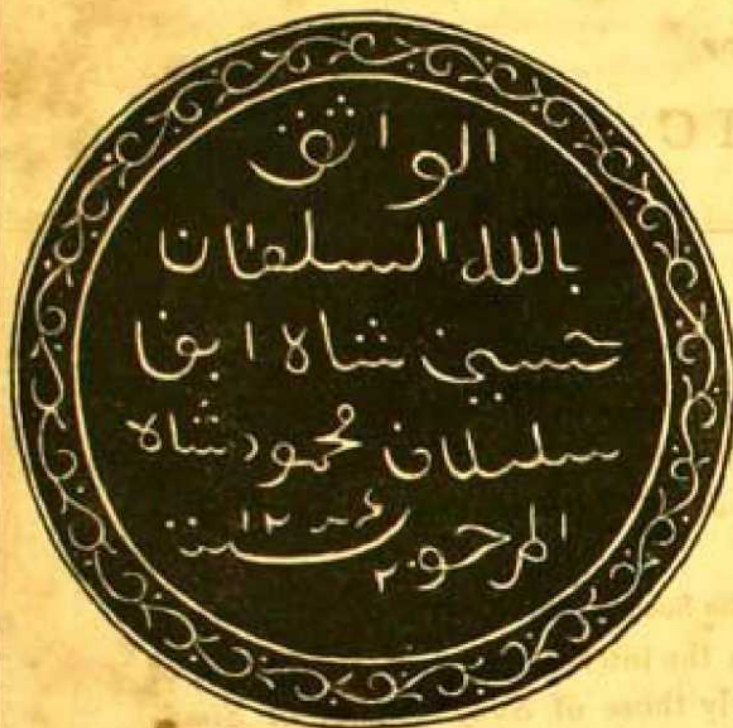 الواثق
بالله السلطان
حسين شاه ابن
سلطان محمود شاه
المرحوم سنة ١٢
I C